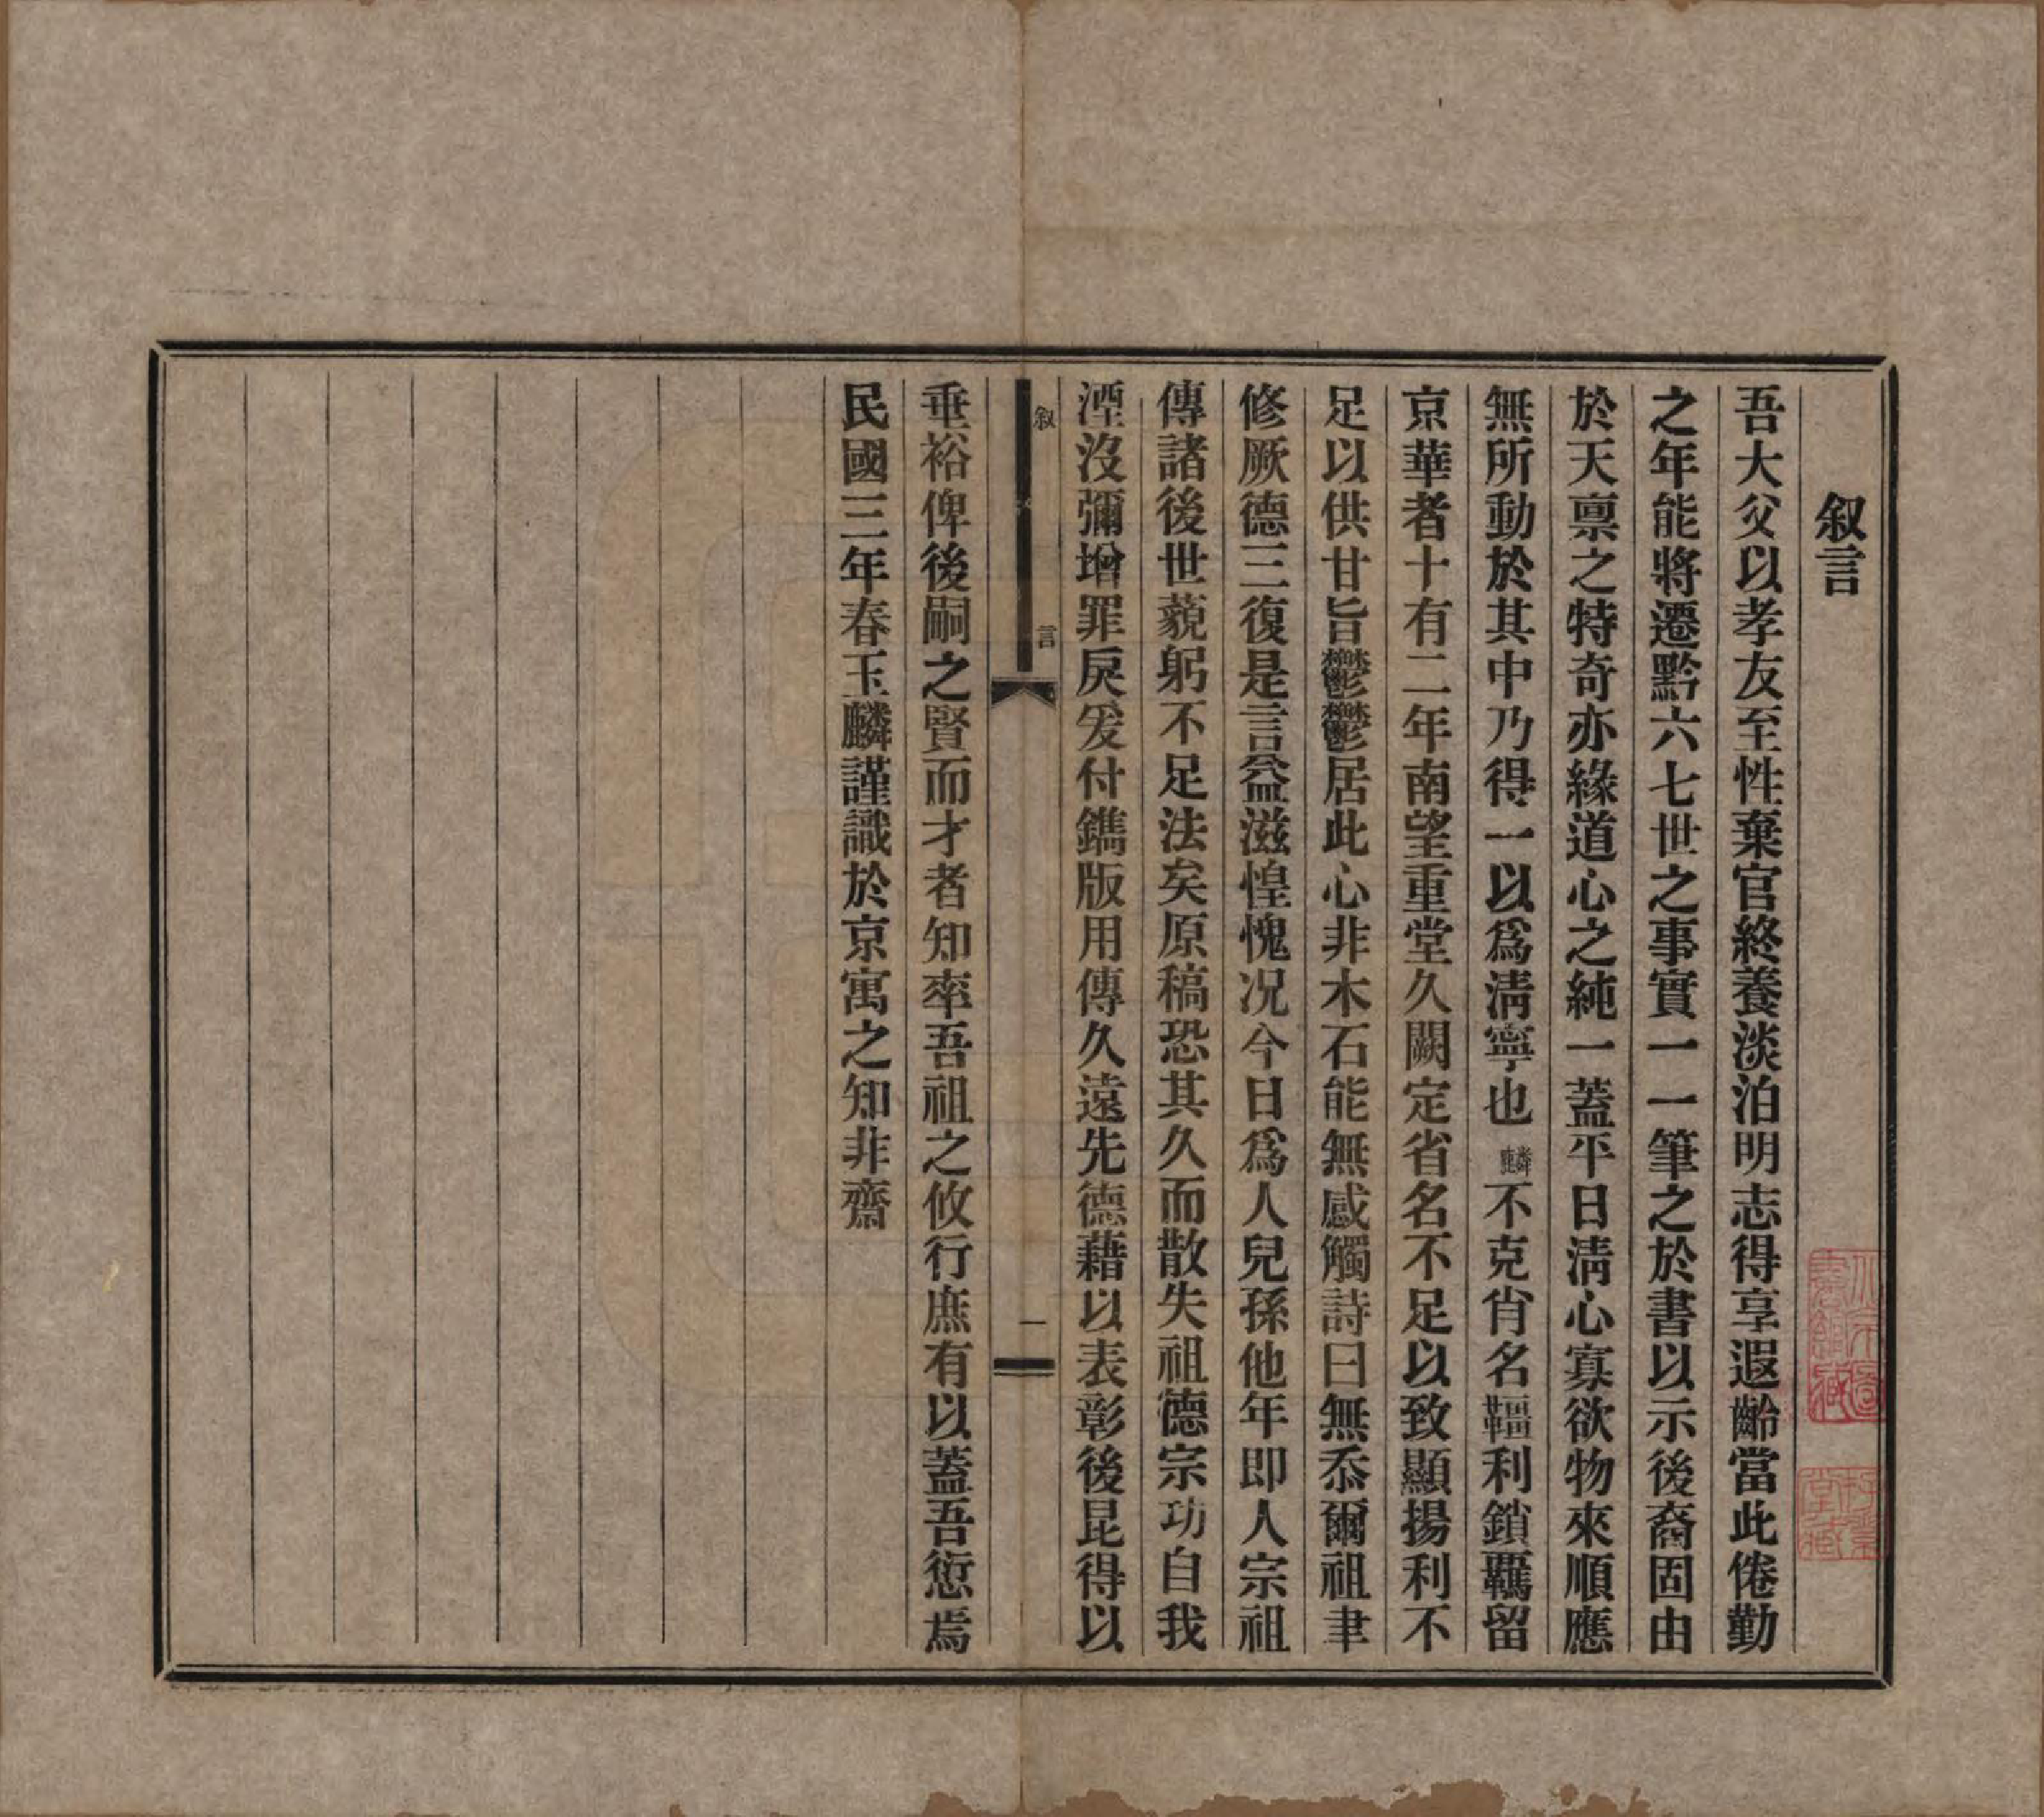 叙言
吾大父以孝友至性棄官終養淡泊明志得享遐齡當此倦勤
之年能將遷黔六七世之事實一一筆之於書以示後裔固由
於天禀之特奇亦緣道心之純一蓋平日清心寡欲物來順應
無所動於其中乃得一以爲清寧也麟不克肖名韁利鎖羈留
京華者十有二年南望重堂久闕定省名不足以致顯揚利不
足以供甘旨鬱鬱居此心非木石能無感觸詩曰無忝爾祖聿
修厥德三復是言益滋惶愧况今日爲人兒孫他年即人宗祖
傳諸後世藐躬不足法矣原稿恐其久而散失祖德宗功自我
湮沒彌增罪戾爰付鐫版用傳久遠先德藉以表彰後昆得以
叙言
一
垂裕俾後嗣之賢而才者知率吾祖之攸行庶有以蓋吾愆焉
民國三年春玉麟謹識於京寓之知非齋